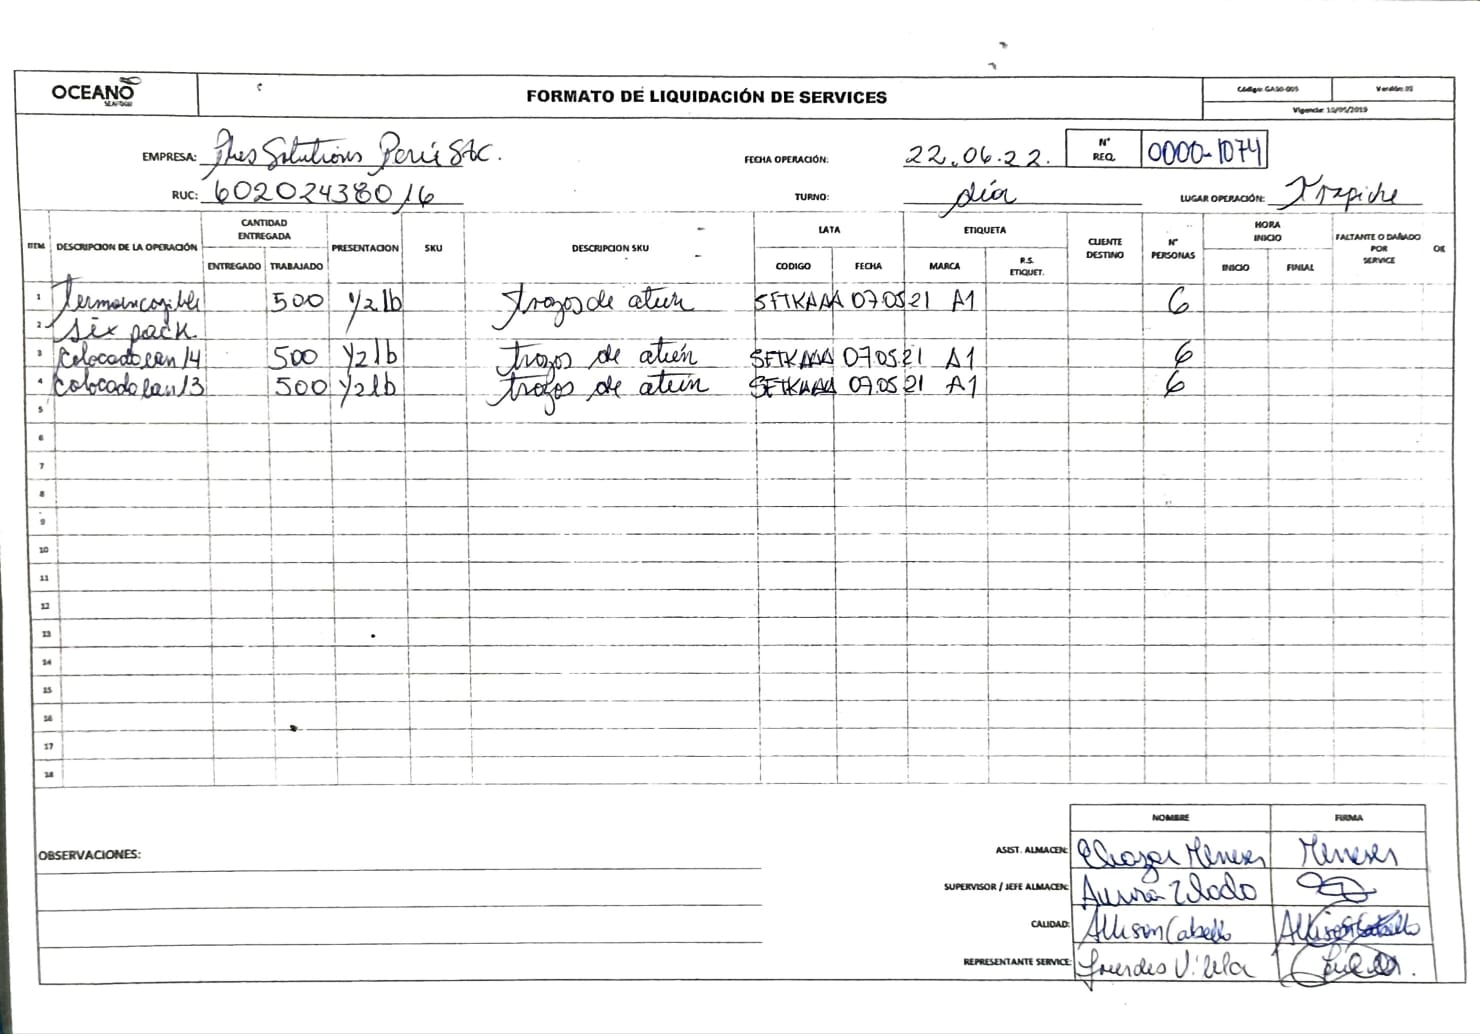 OCEANO
SEAFOOD
FORMATO DE LIQUIDACIÓN DE SERVICES
Código: GASG-005 Versión: 02
Vigencia: 15/05/2019
EMPRESA: Solutions Perú SAC. FECHA OPERACIÓN: 22.06.22. N° REQ. 0000-1074
RUC: 60202438016 TURNO: día LUGAR OPERACIÓN: Trapiche
ITEM DESCRIPCION DE LA OPERACIÓN CANTIDAD ENTREGADA ENTREGADO TRABAJADO PRESENTACION SKU DESCRIPCION SKU LATA CODIGO FECHA ETIQUETA MARCA R.S. ETIQUET. CLIENTE DESTINO N° PERSONAS HORA INICIO INICIO FINIAL FALTANTE O DAÑADO POR SERVICE OK
1 500 1/2 lb trozos de atún 07.05.21 A1 6
2 six pack
3 colocado can 14 500 1/2 lb trozos de atún 07.05.21 A1 6
4 colocado can 13 500 1/2 lb trozos de atún 07.05.21 A1 6
5
6
7
8
9
10
11
12
13
14
15
16
17
18
NOMBRE FIRMA
OBSERVACIONES:
ASIST. ALMACEN: Meneses Meneses
SUPERVISOR / JEFE ALMACEN:
CALIDAD: Allison Cabello Allison Cabello
REPRESENTANTE SERVICE: Lourdes Vilela